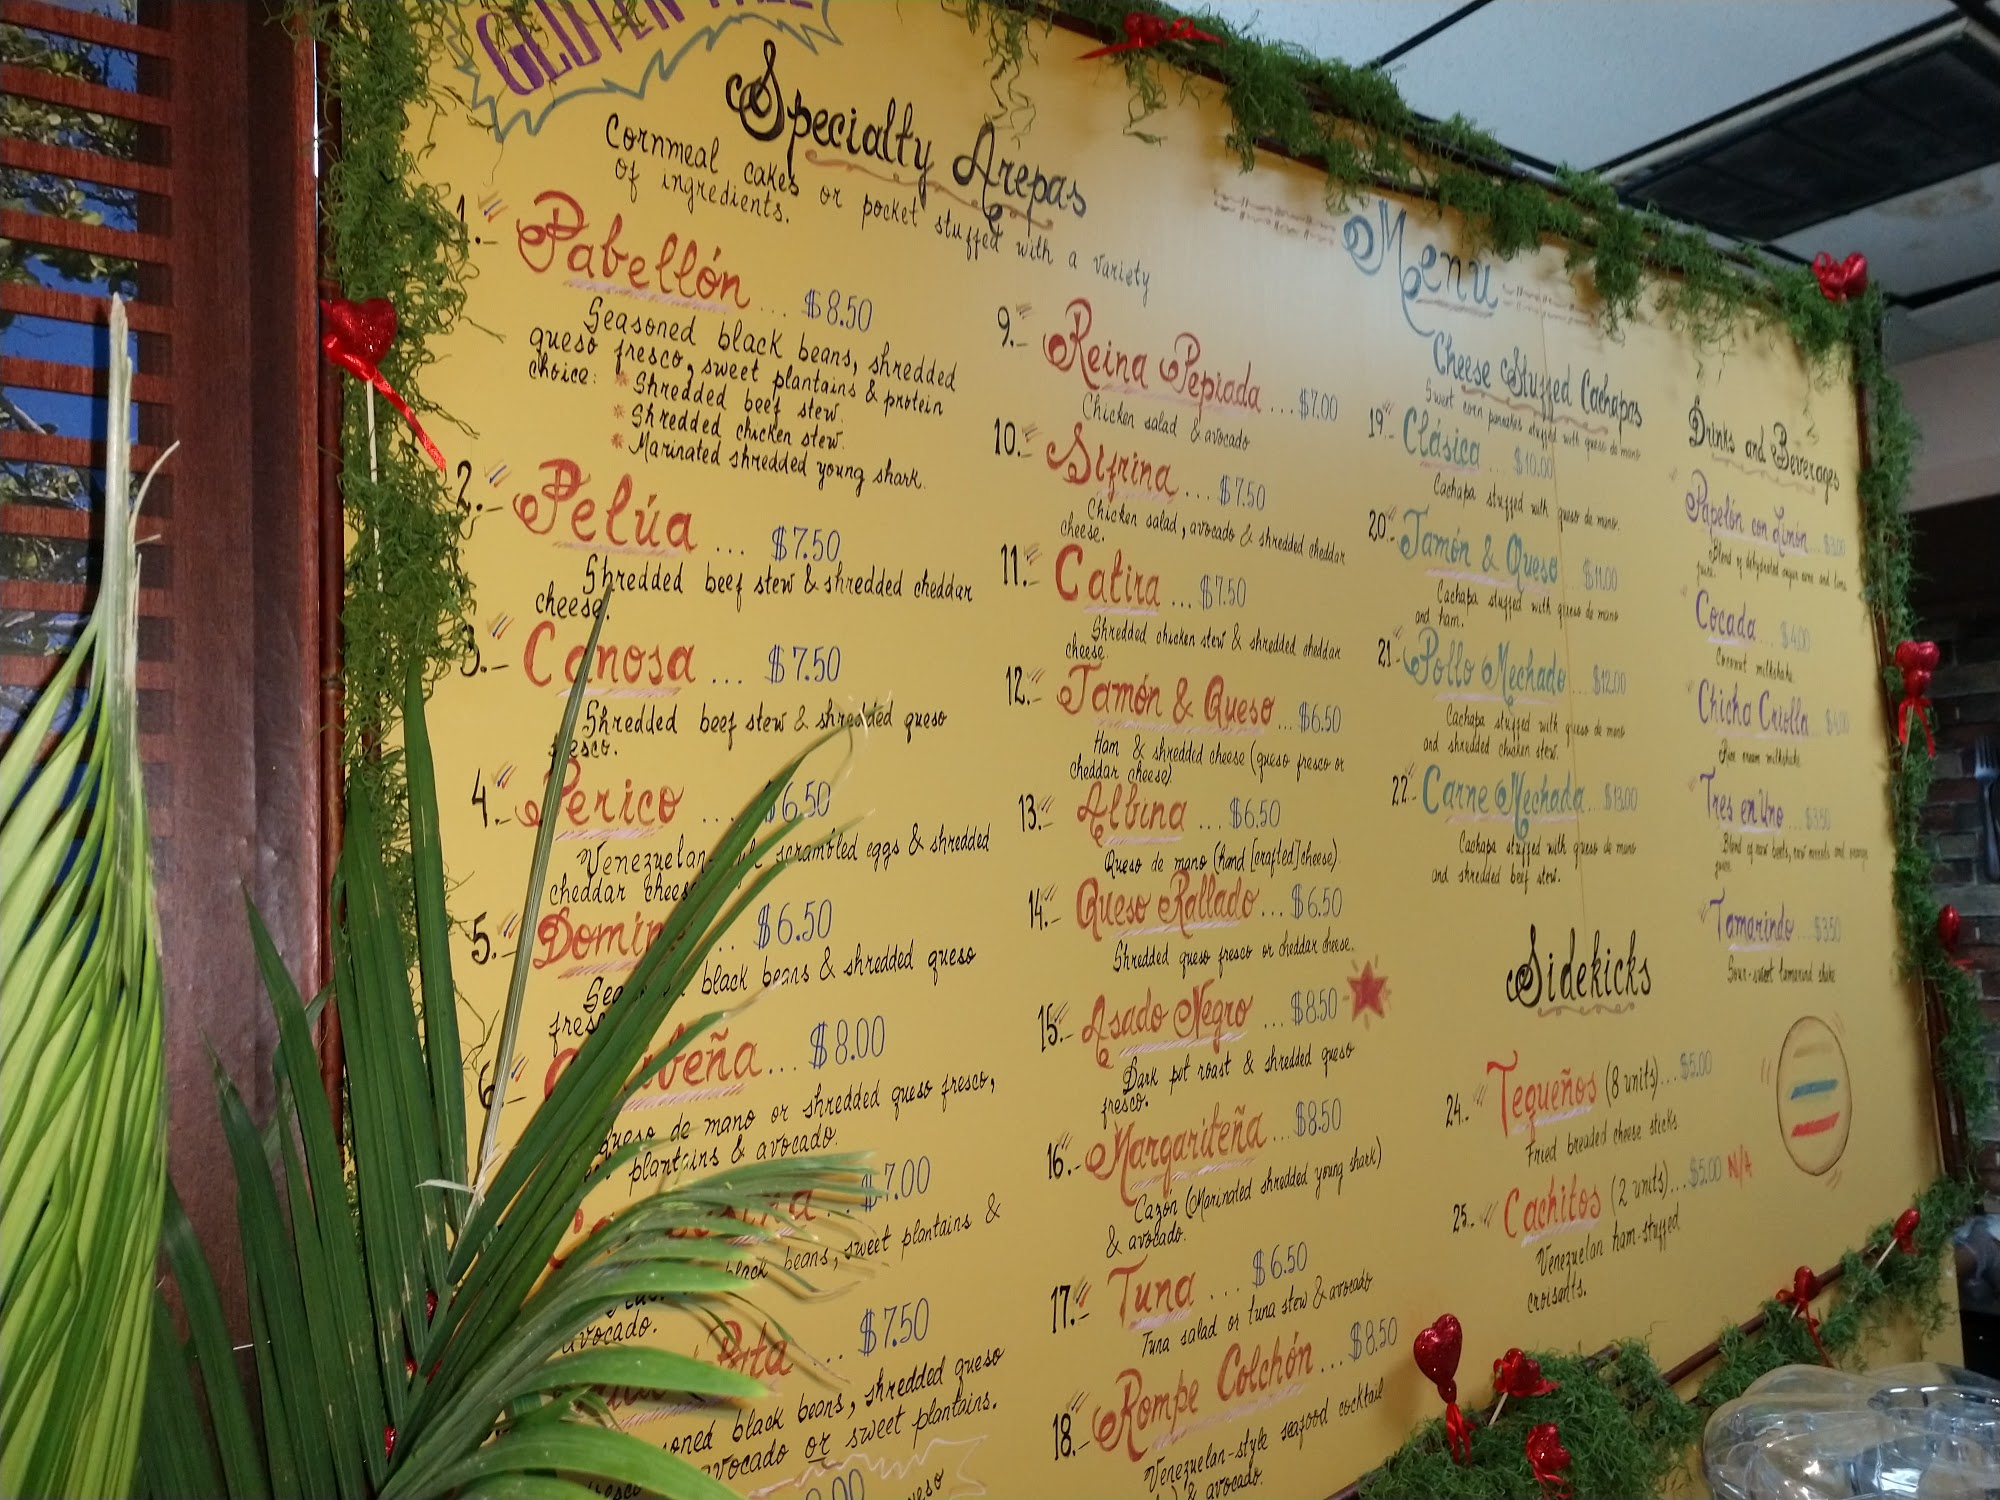 GLUTEN FREE
Specialty Arepas
Cornmeal cakes or pocket stuffed with a variety
of ingredients.
1.- Pabellón ... $8.50
Seasoned black beans, shredded
queso fresco, sweet plantains & protein
choice: * Shredded beef stew.
* Shredded chicken stew.
* Marinated shredded young shark.
2.- Pelúa ... $7.50
Shredded beef stew & shredded cheddar
cheese.
3.- Canosa ... $7.50
Shredded beef stew & shredded queso
fresco.
4.- Perico ... $6.50
Venezuelan-style scrambled eggs & shredded
cheddar cheese
5.- Domin ... $6.50
black beans & shredded queso
6 $8.00
queso de mano or shredded queso fresco,
plantains & avocado.
$7.00
black beans, sweet plantains &
avocado.
Pata ... $7.50
black beans, shredded queso
avocado or sweet plantains.
9.- Reina Pepiada ... $7.00
Chicken salad & avocado
10.- Sifrina ... $7.50
Chicken salad, avocado & shredded cheddar
cheese.
11.- Catira ... $7.50
Shredded chicken stew & shredded cheddar
cheese.
12.- Jamón & Queso ... $6.50
Ham & shredded cheese (queso fresco or
cheddar cheese)
13.- Albina ... $6.50
Queso de mano (hand [crafted] cheese)
14.- Queso Rallado ... $6.50
Shredded queso fresco or cheddar cheese.
15.- Asado Negro ... $8.50
Dark pot roast & shredded queso
fresco.
16.- Margariteña ... $8.50
Cazón (Marinated shredded young shark)
& avocado.
17.- Tuna .... $6.50
Tuna salad or tuna stew & avocado
18.- Rompe Colchón ... $8.50
Venezuelan-style seafood cocktail
& avocado.
Menu
Cheese Stuffed Cachapas
Sweet corn pancakes stuffed with queso de mano
19.- Clásica ... $10.00
Cachapa stuffed with queso de mano.
20.- Jamón & Queso ... $11.00
Cachapa stuffed with queso de mano
and ham.
21.- Pollo Mechado ... $12.00
Cachapa stuffed with queso de mano
and shredded chicken stew.
22.- Carne Mechada ... $13.00
Cachapa stuffed with queso de mano
and shredded beef stew.
Sidekicks
24.- Tequeños (8 units)... $5.00
Fried breaded cheese sticks
25.- Cachitos (2 units)... $5.00 N/A
Venezuelan ham-stuffed
croissants.
Drinks and Beverages
Papelón con Limón ...
Blend of dehydrated sugar cane and lime
juice.
Cocada ... $4.00
Coconut milkshake.
Chicha Criolla ... $4.00
Rice cream milkshake.
Tres en Uno ... $3.50
Blend of raw beets, raw carrots and orange
juice.
Tamarindo ... $3.50
Sour-sweet tamarind shake